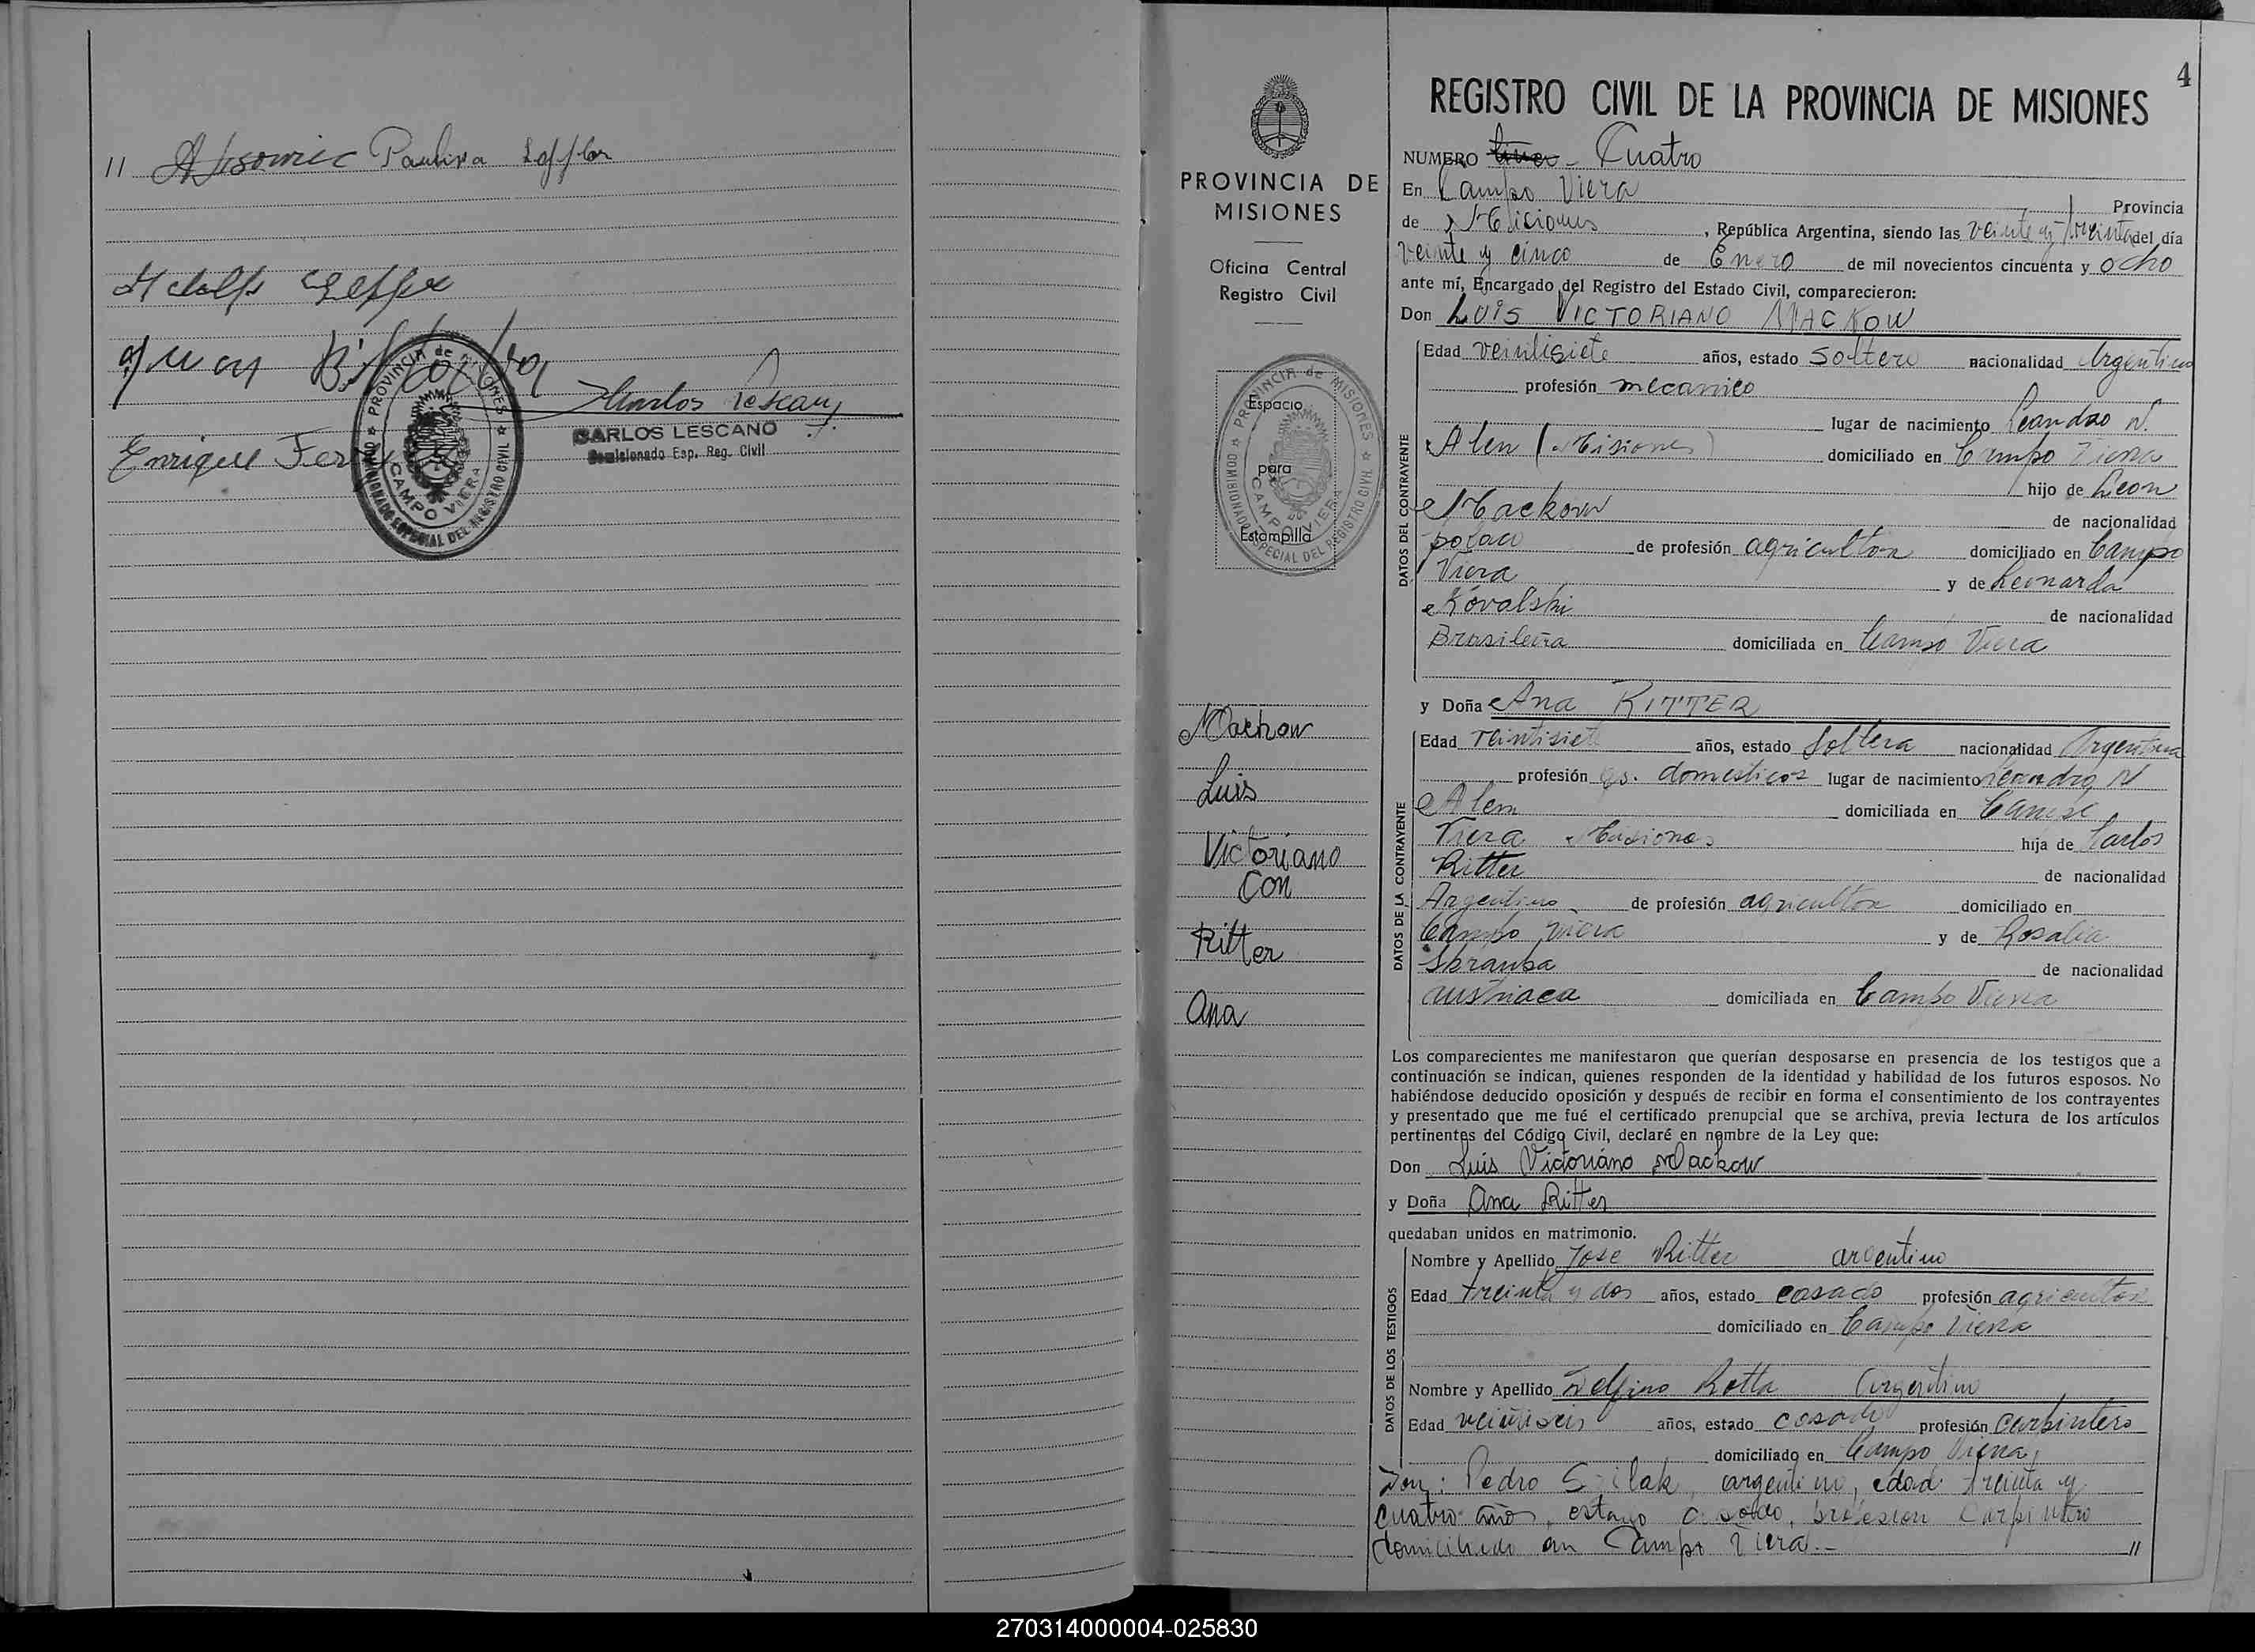 11 Paulina
Juan
CARLOS LESCANO
Comisionado Esp. Reg. Civil
Enrique
PROVINCIA de MISIONES
COMISIONADO ESPECIAL DEL REGISTRO CIVIL
CAMPO VIERA
PROVINCIA DE
MISIONES
Oficina Central
Registro Civil
Espacio
para
Estampilla
PROVINCIA de MISIONES
COMISIONADO ESPECIAL DEL REGISTRO CIVIL
CAMPO VIERA
Mackow
Luis
Victoriano
Con
Ritter
Ana
4
REGISTRO CIVIL DE LA PROVINCIA DE MISIONES
NUMERO Cuatro
En Campo Viera
Provincia
de Misiones, República Argentina, siendo las veinte y treinta del día
veinte y cinco de Enero de mil novecientos cincuenta y ocho
ante mí, Encargado del Registro del Estado Civil, comparecieron:
Don LUIS VICTORIANO MACKOW
DATOS DEL CONTRAYENTE
Edad veintisiete años, estado soltero nacionalidad Argentino
profesión mecanico
lugar de nacimiento Leandro N.
Alen (Misiones) domiciliado en Campo Viera
hijo de Leon
Mackow de nacionalidad
polaco de profesión agricultor domiciliado en Campo
Viera y de Leonarda
Kovalski de nacionalidad
Brasileña domiciliada en Campo Viera
y Doña Ana RITTER
DATOS DE LA CONTRAYENTE
Edad veintisiete años, estado soltera nacionalidad Argentina
profesión qs. domesticos lugar de nacimiento Leandro N
Alem domiciliada en Campo
Viera Misiones hija de Carlos
Ritter de nacionalidad
Argentino de profesión agricultor domiciliado en
Campo Viera y de Rosalia
de nacionalidad
austriaca domiciliada en Campo Viera
Los comparecientes me manifestaron que querían desposarse en presencia de los testigos que a
continuación se indican, quienes responden de la identidad y habilidad de los futuros esposos. No
habiéndose deducido oposición y después de recibir en forma el consentimiento de los contrayentes
y presentado que me fué el certificado prenupcial que se archiva, previa lectura de los artículos
pertinentes del Código Civil, declaré en nombre de la Ley que:
Don Luis Victoriano Mackow
y Doña Ana Ritter
quedaban unidos en matrimonio.
DATOS DE LOS TESTIGOS
Nombre y Apellido Jose Ritter argentino
Edad treinta y dos años, estado casado profesión agricultor
domiciliado en Campo Viera
Nombre y Apellido Delfino Rotta Argentino
Edad veintiseis años, estado casado profesión carpintero
domiciliado en Campo Viera,
Don: Pedro argentino, edad treinta y
cuatro años, estado casado, profesion Carpintero
domiciliado en Campo Viera.- "
270314000004-025830